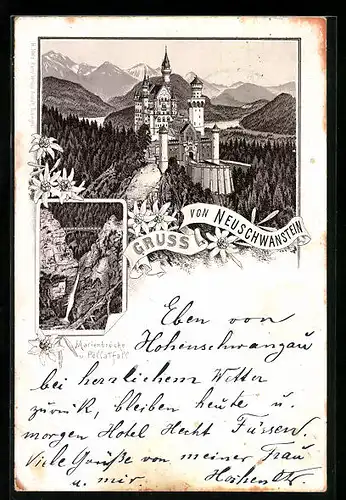 GRUSS VON NEUSCHWANSTEIN
Marienbrücke
u. Pöllatfall
Eben von
Hohenschwangau
bei herrlichem Wetter
zurück, bleiben heute u.
morgen Hotel Hecht Füssen
Viele Grüße von meiner Frau
u. mir